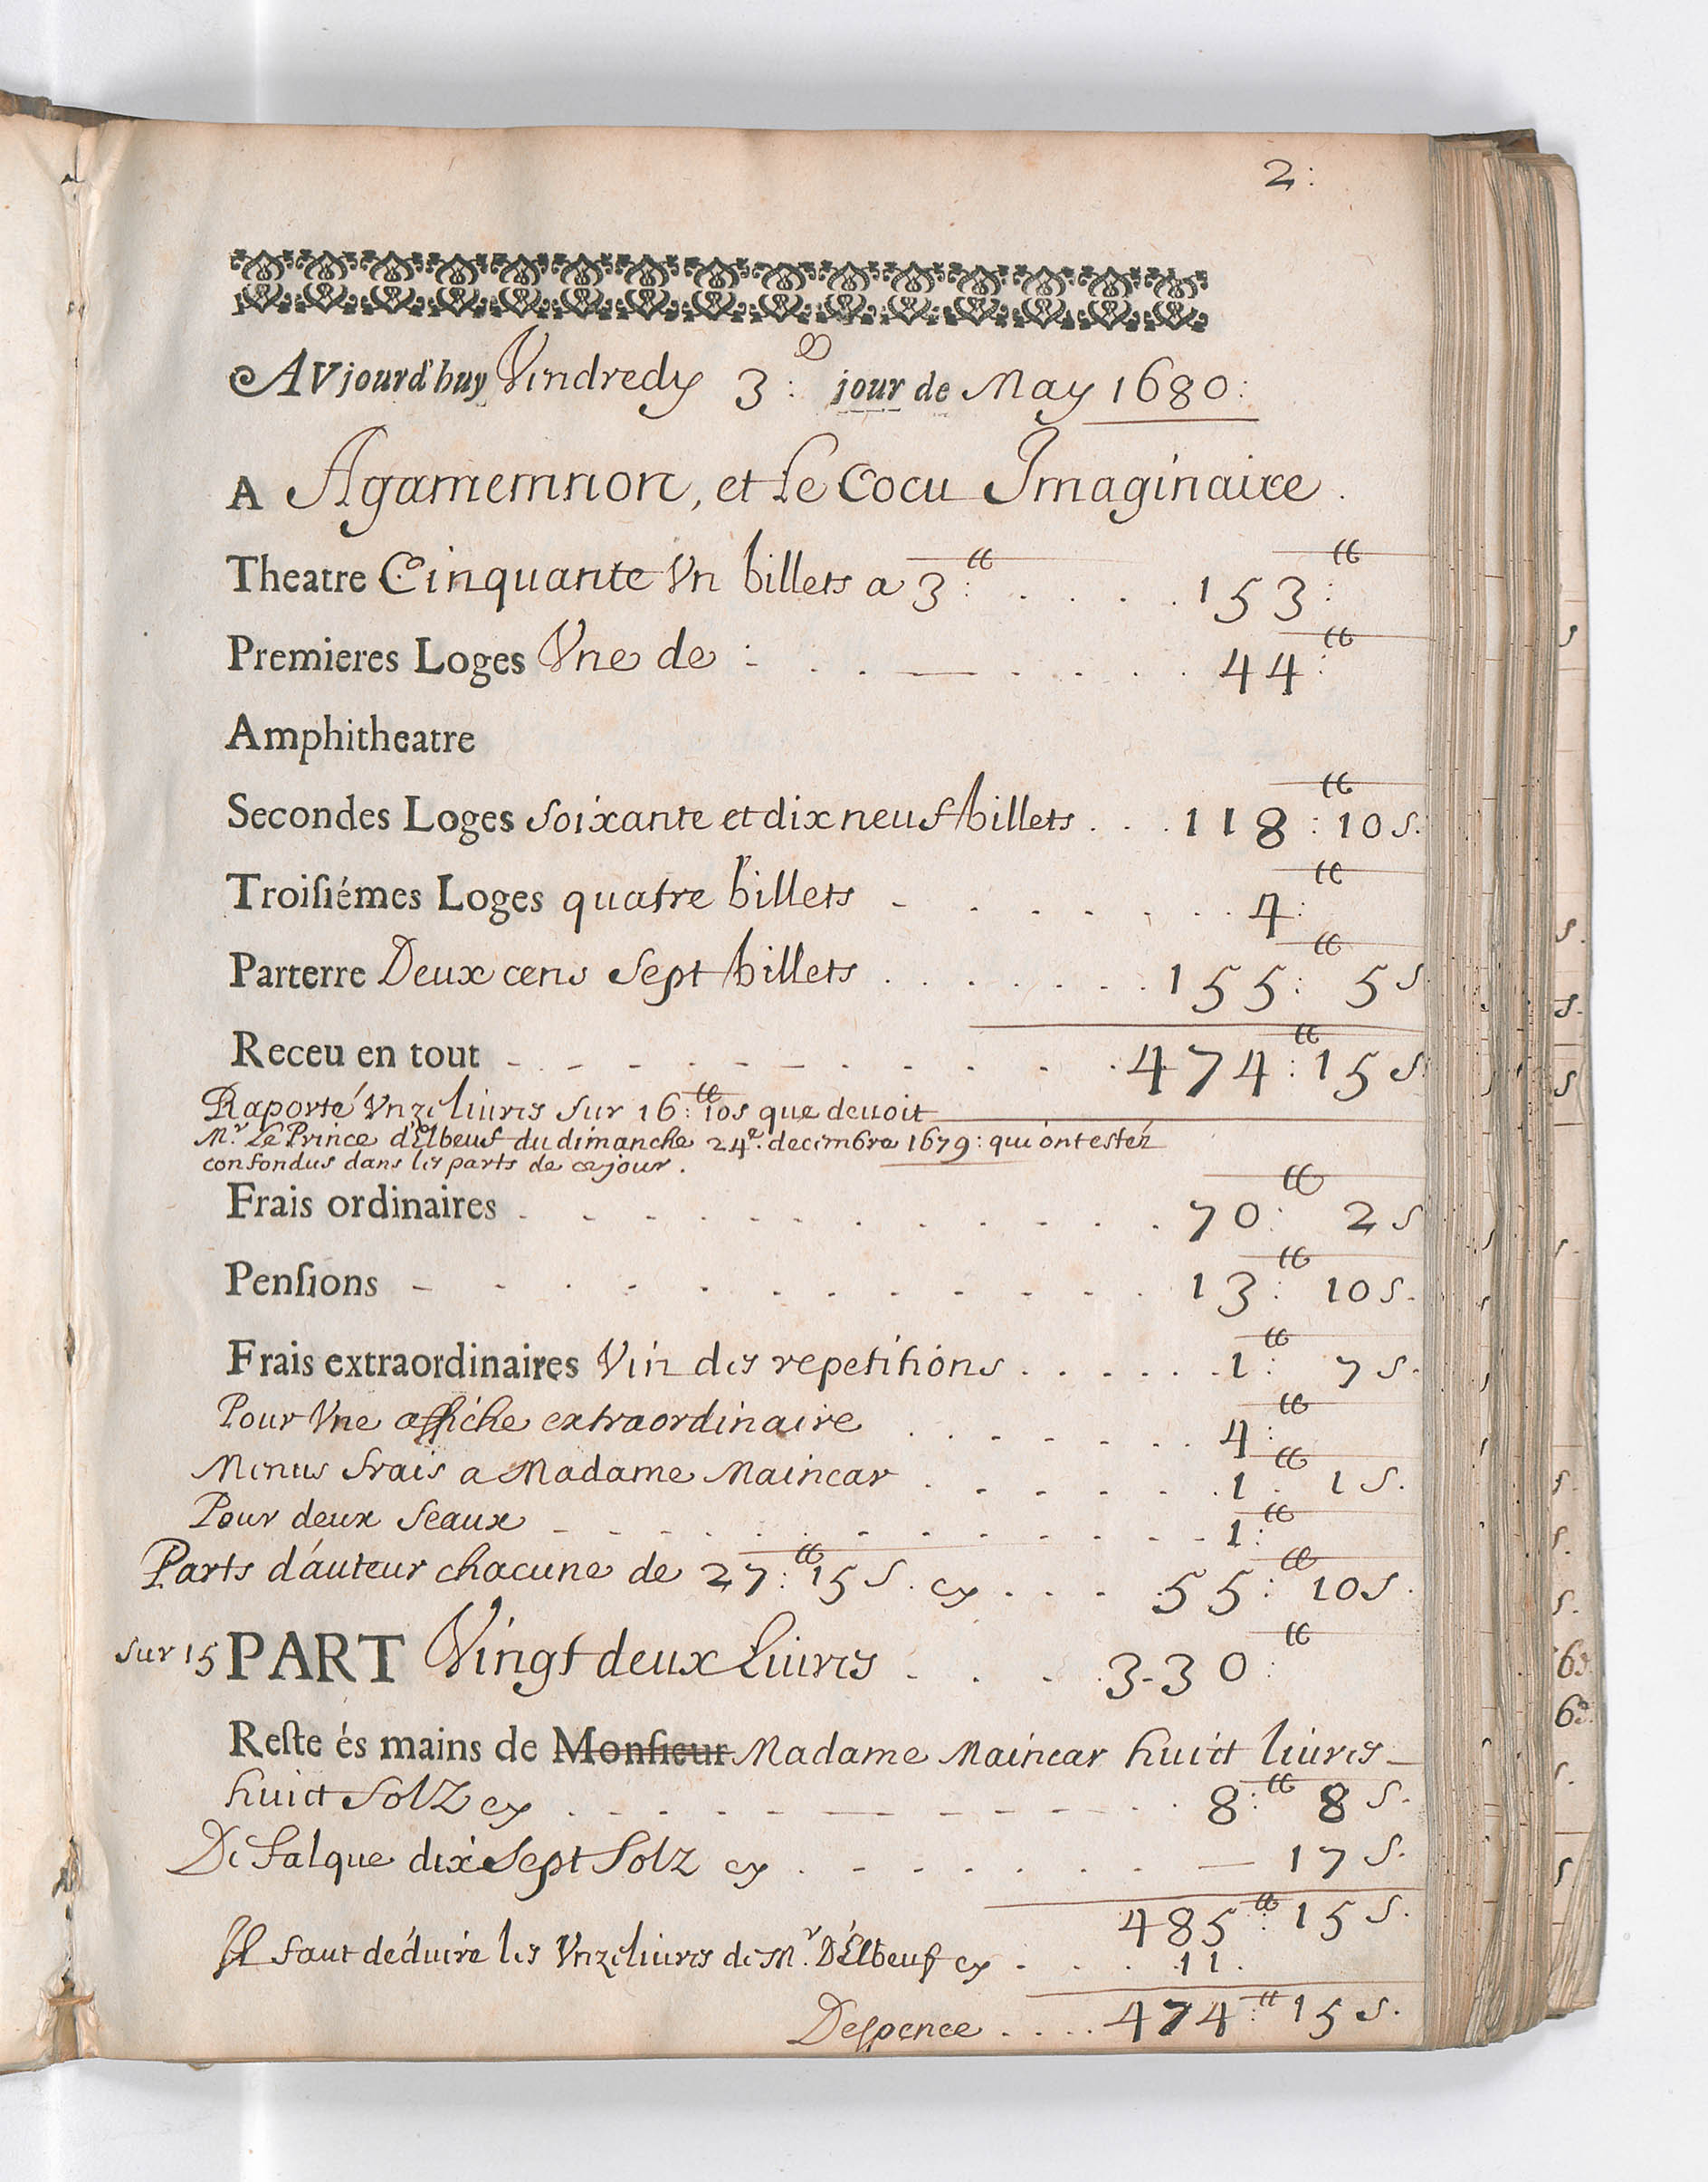 2:
AVjourd'huy Vindredy 3: jour de May 1680:
A Agamemnon, et Le Cocu Imaginaire.
Theatre Cinquante Vn billets a 3:ᵗᵗ . . . . 153:ᵗᵗ
Premieres Loges Vne de : . . . . . . . 44:ᵗᵗ
Amphitheatre
Secondes Loges soixante et dix neuf billets . . . 118:ᵗᵗ 10 s.
Troisiémes Loges quatre billets . . . . . . . 4:ᵗᵗ
Parterre Deux cens Sept billets . . . . . . . 155:ᵗᵗ 5 s
Receu en tout . . . . . . . . . . 474:ᵗᵗ 15 s.
Raporté Vnze liures sur 16:ᵗᵗ 10s que deuoit
Mʳ. Le Prince d'Elbeuf du dimanche 24ᵉ. decembre 1679: qui ont estéz
confondus dans les parts de ce jour.
Frais ordinaires . . . . . . . . . . . 70:ᵗᵗ 2 s
Pensions . . . . . . . . . . . . 13:ᵗᵗ 10 s.
Frais extraordinaires Vin des repetitions . . . . . . 1:ᵗᵗ 7 s.
Pour Vne affiche extraordinaire . . . . . . 4:ᵗᵗ
Menus frais a Madame Maincar . . . . . . 1.ᵗᵗ 1 s.
Pour deux Seaux . . . . . . . . . . . 1:ᵗᵗ
Parts d'auteur chacune de 27:ᵗᵗ 15 s. cy . . . 55:ᵗᵗ 10 s.
Sur 15 PART Vingt deux Liures . . . 3-30:ᵗᵗ
Reste és mains de Monsieur Madame Maincar huict liures
huict Solz cy . . . . . . . . . . 8:ᵗᵗ 8 s.
De falque dix Sept Solz cy . . . . . . . 17 s.
485:ᵗᵗ 15 s.
Il faut déduire les Vnze liures de Mʳ. D'Elbeuf cy . . . . 11.
Despence . . . . 474:ᵗᵗ 15 s.